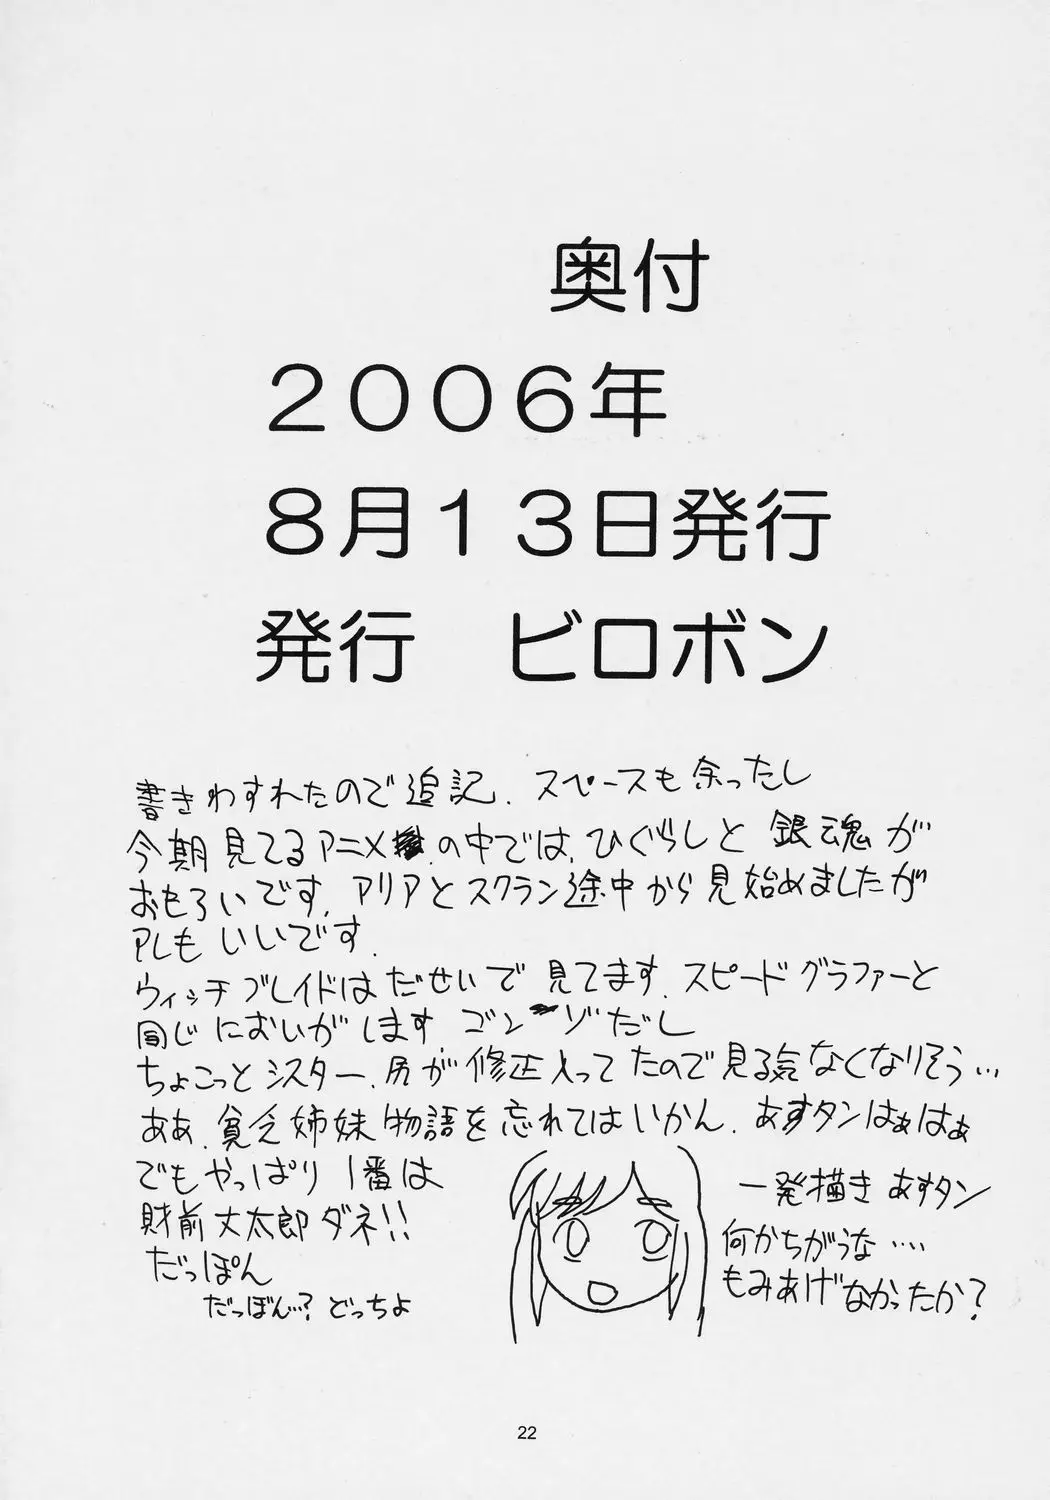 奥付
2006年
8月13日発行
発行 ビロボン
書きわすれたので追記、スペースも余ったし
今期見てるアニメの中では、ひぐらしと銀魂が
おもろいです、アリアとスクラン途中から見始めましたが
アレもいいです、
ウィッチブレイドはだせいで見てます、スピードグラファーと
同じにおいがします、ゴンゾだし
ちょこっとシスター、尻が修正入ってたので見る気なくなりそう…
ああ、貧乏姉妹物語を忘れてはいかん、あすタンはぁはぁ
でもやっぱり1番は
財前丈太郎ダネ!!
だっぽん
だっぼん…?どっちよ
一発描きあすタン
何かちがうな…
もみあげなかったか?
22